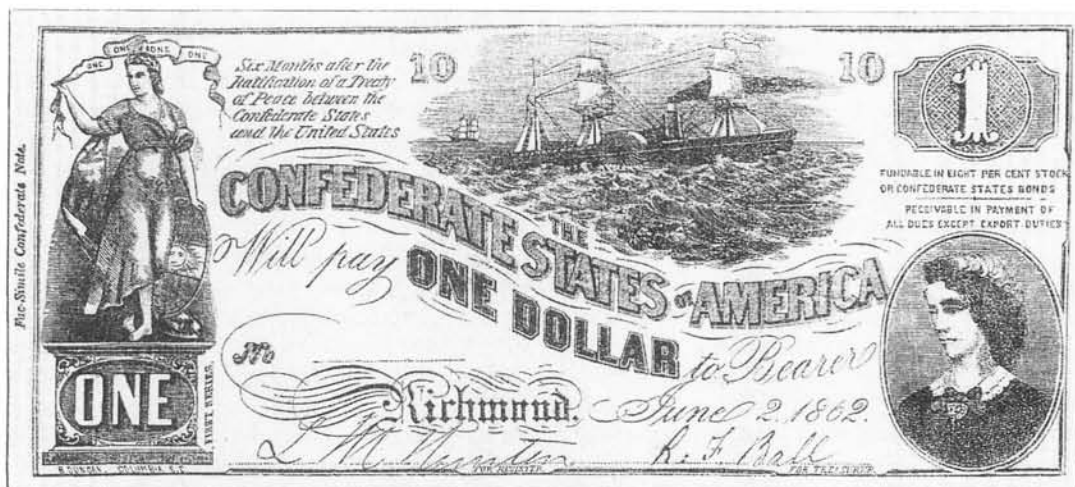 ONE ONE ONE ONE
Six Months after the
Ratification of a Treaty
of Peace between the
Confederate States
and the United States
10
10
1
FUNDABLE IN EIGHT PER CENT STOCK
OR CONFEDERATE STATES BONDS
RECEIVABLE IN PAYMENT OF
ALL DUES EXCEPT EXPORT DUTIES
Fac-Simile Confederate Note.
THE
CONFEDERATE STATES OF AMERICA
Will pay ONE DOLLAR to Bearer
No
Richmond, June 2. 1862.
ONE
FIRST SERIES.
B. DUNCAN, COLUMBIA, S.C.
FOR REGISTER
R. F. Ball
FOR TREASURER